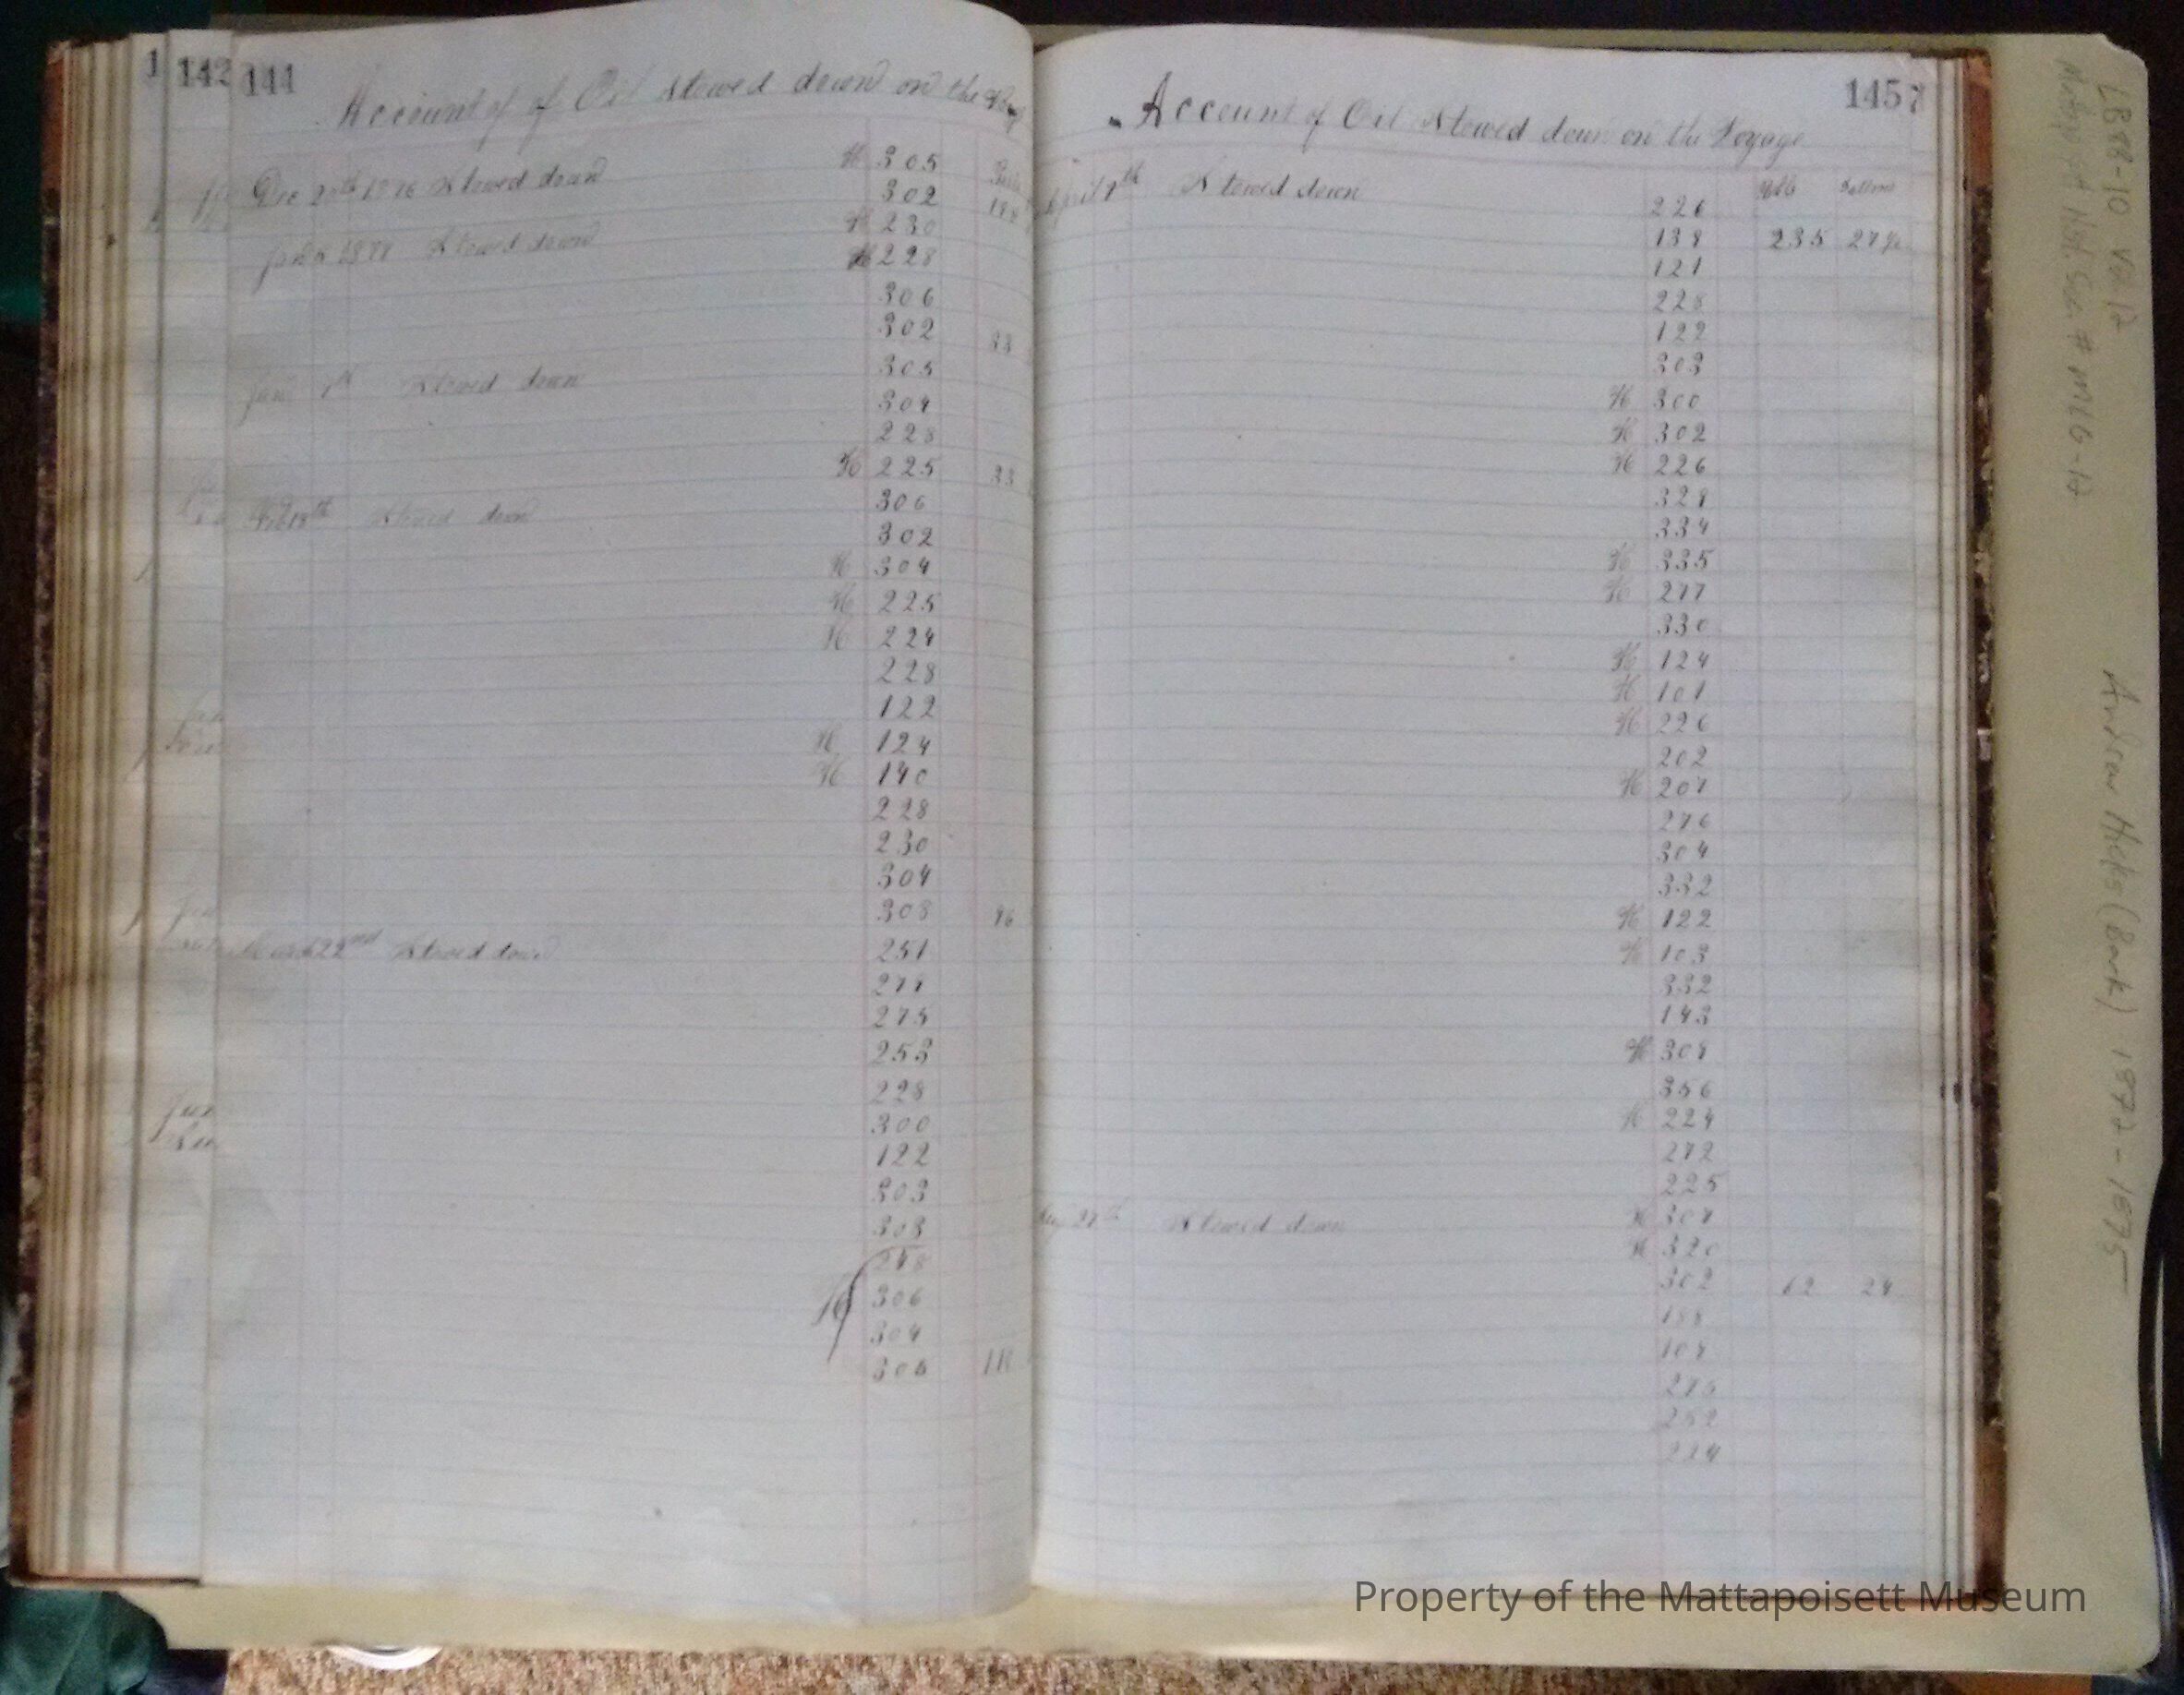 142
141
Account of of Oil stowed down on the
H 305
Dec 20th 1876 Stowed down
302
H 230
1877 Stowed down
H 228
306
302
33
305
Jan Stowed down
304
228
H 225
33
306
Stowed down
302
H 304
H 225
H 224
228
122
H 124
H 140
228
230
304
308
96
March 22nd Stowed down
251
277
275
253
228
300
122
303
303
248
H 306
304
306
145
Account of Oil Stowed down on the Voyage
April 7th Stowed down
Bbls Gallons
226
138 235
121
228
122
303
H 300
H 302
H 226
328
334
H 335
H 277
330
H 124
H 101
H 226
202
H 207
276
304
332
H 122
H 103
332
143
H 307
356
H 224
272
225
27th Stowed down H 307
H 320
302 62 24
252
224
LB88-10 Vol. 12
Andrew Hicks (Bark)
Property of the Mattapoisett Museum